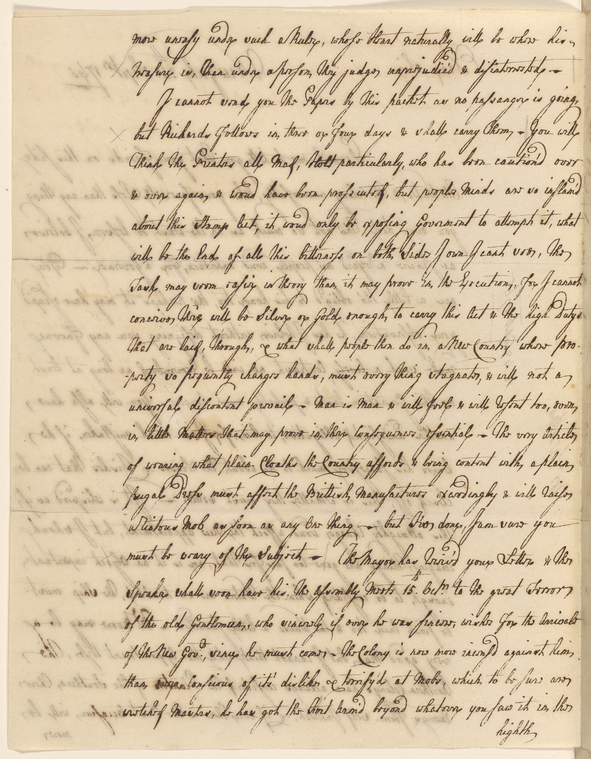 more uneasy under such a Ruler, whose Heart naturally will be where his
treasure is, than under a person, they judge, unprejudic'd & disinterested. –
I cannot send you the Papers by this packet as no passenger is going,
but Richards follows in three or four days & shall carry them, – You will
think the Printers all Mad, Holt particularly, who has been caution'd over
& over again, & woud have been prosecuted, but peoples minds are so inflam'd
about this Stamp Act, it woud only be exposing Goverment to attempt it, what
will be the End of all this bitterness on both Sides I own I cant see, The
Task may seem easier in theory than it may prove in the Execution, for I cannot
conceive there will be Silver or Gold enough, to carry this Act & the high Dutys
that are laid, through, & what shall people then do in a New Country where pro-
perty so frequently changes hands, must every thing stagnate, & will not a
universal discontent prevail – Man is Man & will feel & will resent too, even
in little Matters that may prove in their Consequences essential – The very Article
of wearing what plain Cloaths the Country affords & being content with a plain,
frugal Dress must affect the Brittish Manufactures exceedingly & will raise
a riotous Mob as soon as any One thing – but I've done, I am sure you
must be weary of the Subject – The Mayor has receiv'd your Letter & the
Speaker shall soon have his, the Assembly meets 15th Octr. to the great Terror
of the old Gentleman, who sincerely if ever he was sincere, wishes for the Arrival
of the New Govr., since he must come – The Colony is now more incens'd against him
than ever conscious of it's dislike & terrify'd at Mobs, which to be sure are
wretched Masters, he has got the Fort Arm'd beyond whatever you saw it in the
highth